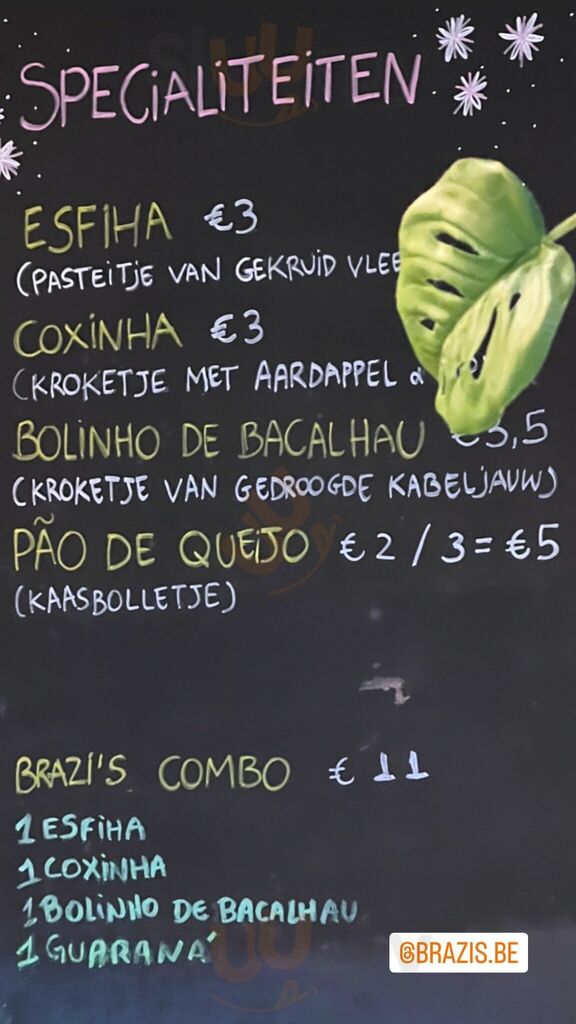 SPECIALITEITEN
ESFIHA €3
(PASTEITJE VAN GEKRUID
COXINHA €3
(KROKETJE MET AARDAPPEL
BOLINHO DE BACALHAU €3,5
(KROKETJE VAN GEDROOGDE KABELJAUW)
PÃO DE QUEIJO €2 / 3 = €5
(KAASBOLLETJE)
BRAZI'S COMBO € 11
1 ESFIHA
1 COXINHA
1 BOLINHO DE BACALHAU
1 GUARANÁ
@BRAZIS.BE